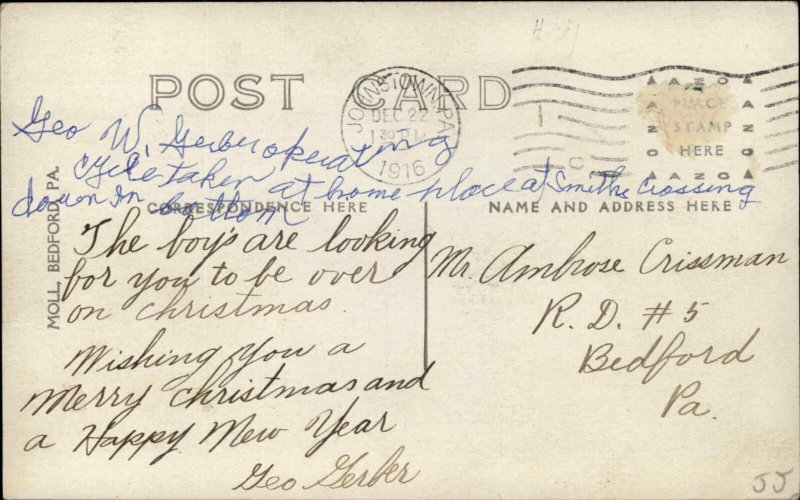 POST CARD
JOHNSTOWN, PA.
DEC 22
1 30 PM
1916
PLACE
STAMP
HERE
AZO
Geo W. Gerber operating
taken at home place at Smiths Crossing
down in bottom
CORRESPONDENCE HERE
NAME AND ADDRESS HERE
MOLL, BEDFORD, PA.
The boy's are looking
for you to be over
on christmas.
Wishing you a
Merry Christmas and
a Happy New Year
Geo Gerber
Mr. Ambrose Crissman
R. D. # 5
Bedford
Pa.
55